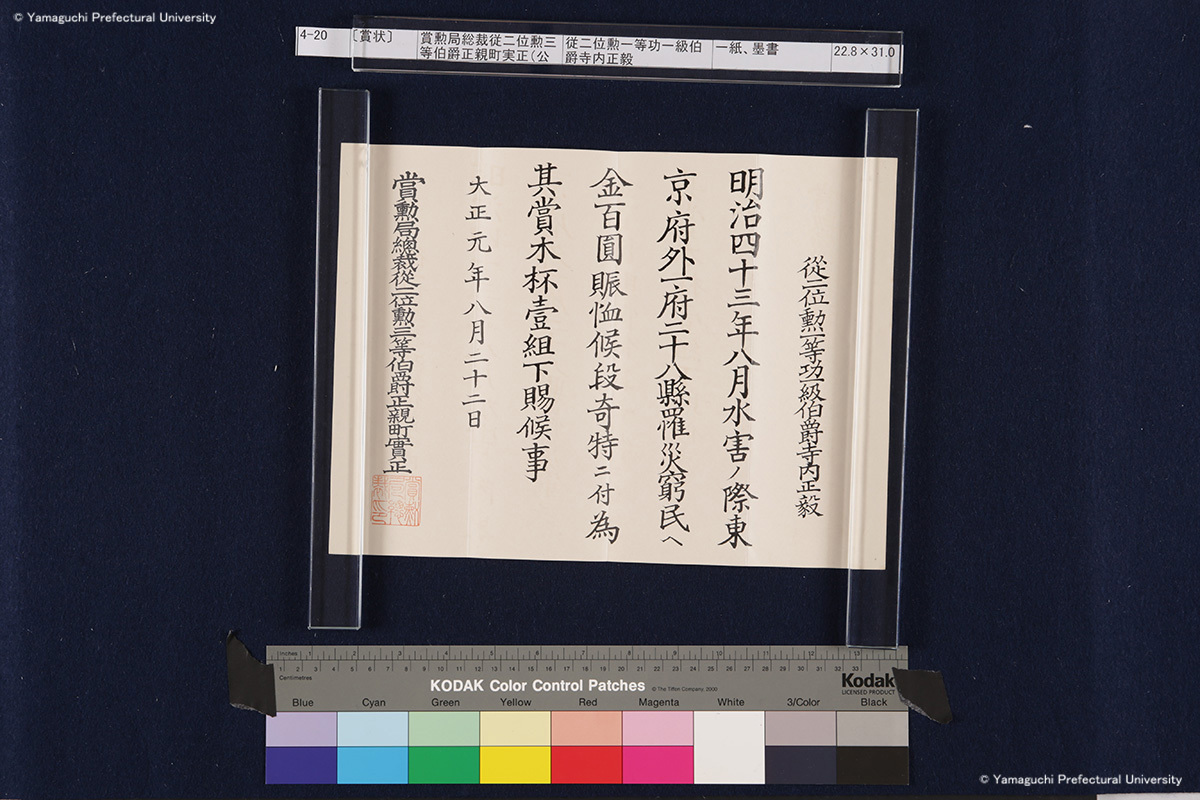 © Yamaguchi Prefectural University
4-20
〔賞状〕
賞勲局総裁従二位勲三
等伯爵正親町実正(公
従二位勲一等功一級伯
爵寺内正毅
一紙、墨書
22.8×31.0
從二位勲一等功一級伯爵寺内正毅
明治四十三年八月水害ノ際東
京府外一府二十八縣罹災窮民へ
金百圓賑恤候段奇特ニ付為
其賞木杯壹組下賜候事
大正元年八月二十二日
賞勲局總裁從二位勲三等伯爵正親町實正
Inches 1 2 3 4 5 6 7 8 9 10 11 12 13
1 2 3 4 5 6 7 8 9 10 11 12 13 14 15 16 17 18 19 20 21 22 23 24 25 26 27 28 29 30 31 32 33
Centimetres
KODAK Color Control Patches © The Tiffen Company 2000
Kodak
LICENSED PRODUCT
Blue Cyan Green Yellow Red Magenta White 3/Color Black
© Yamaguchi Prefectural University